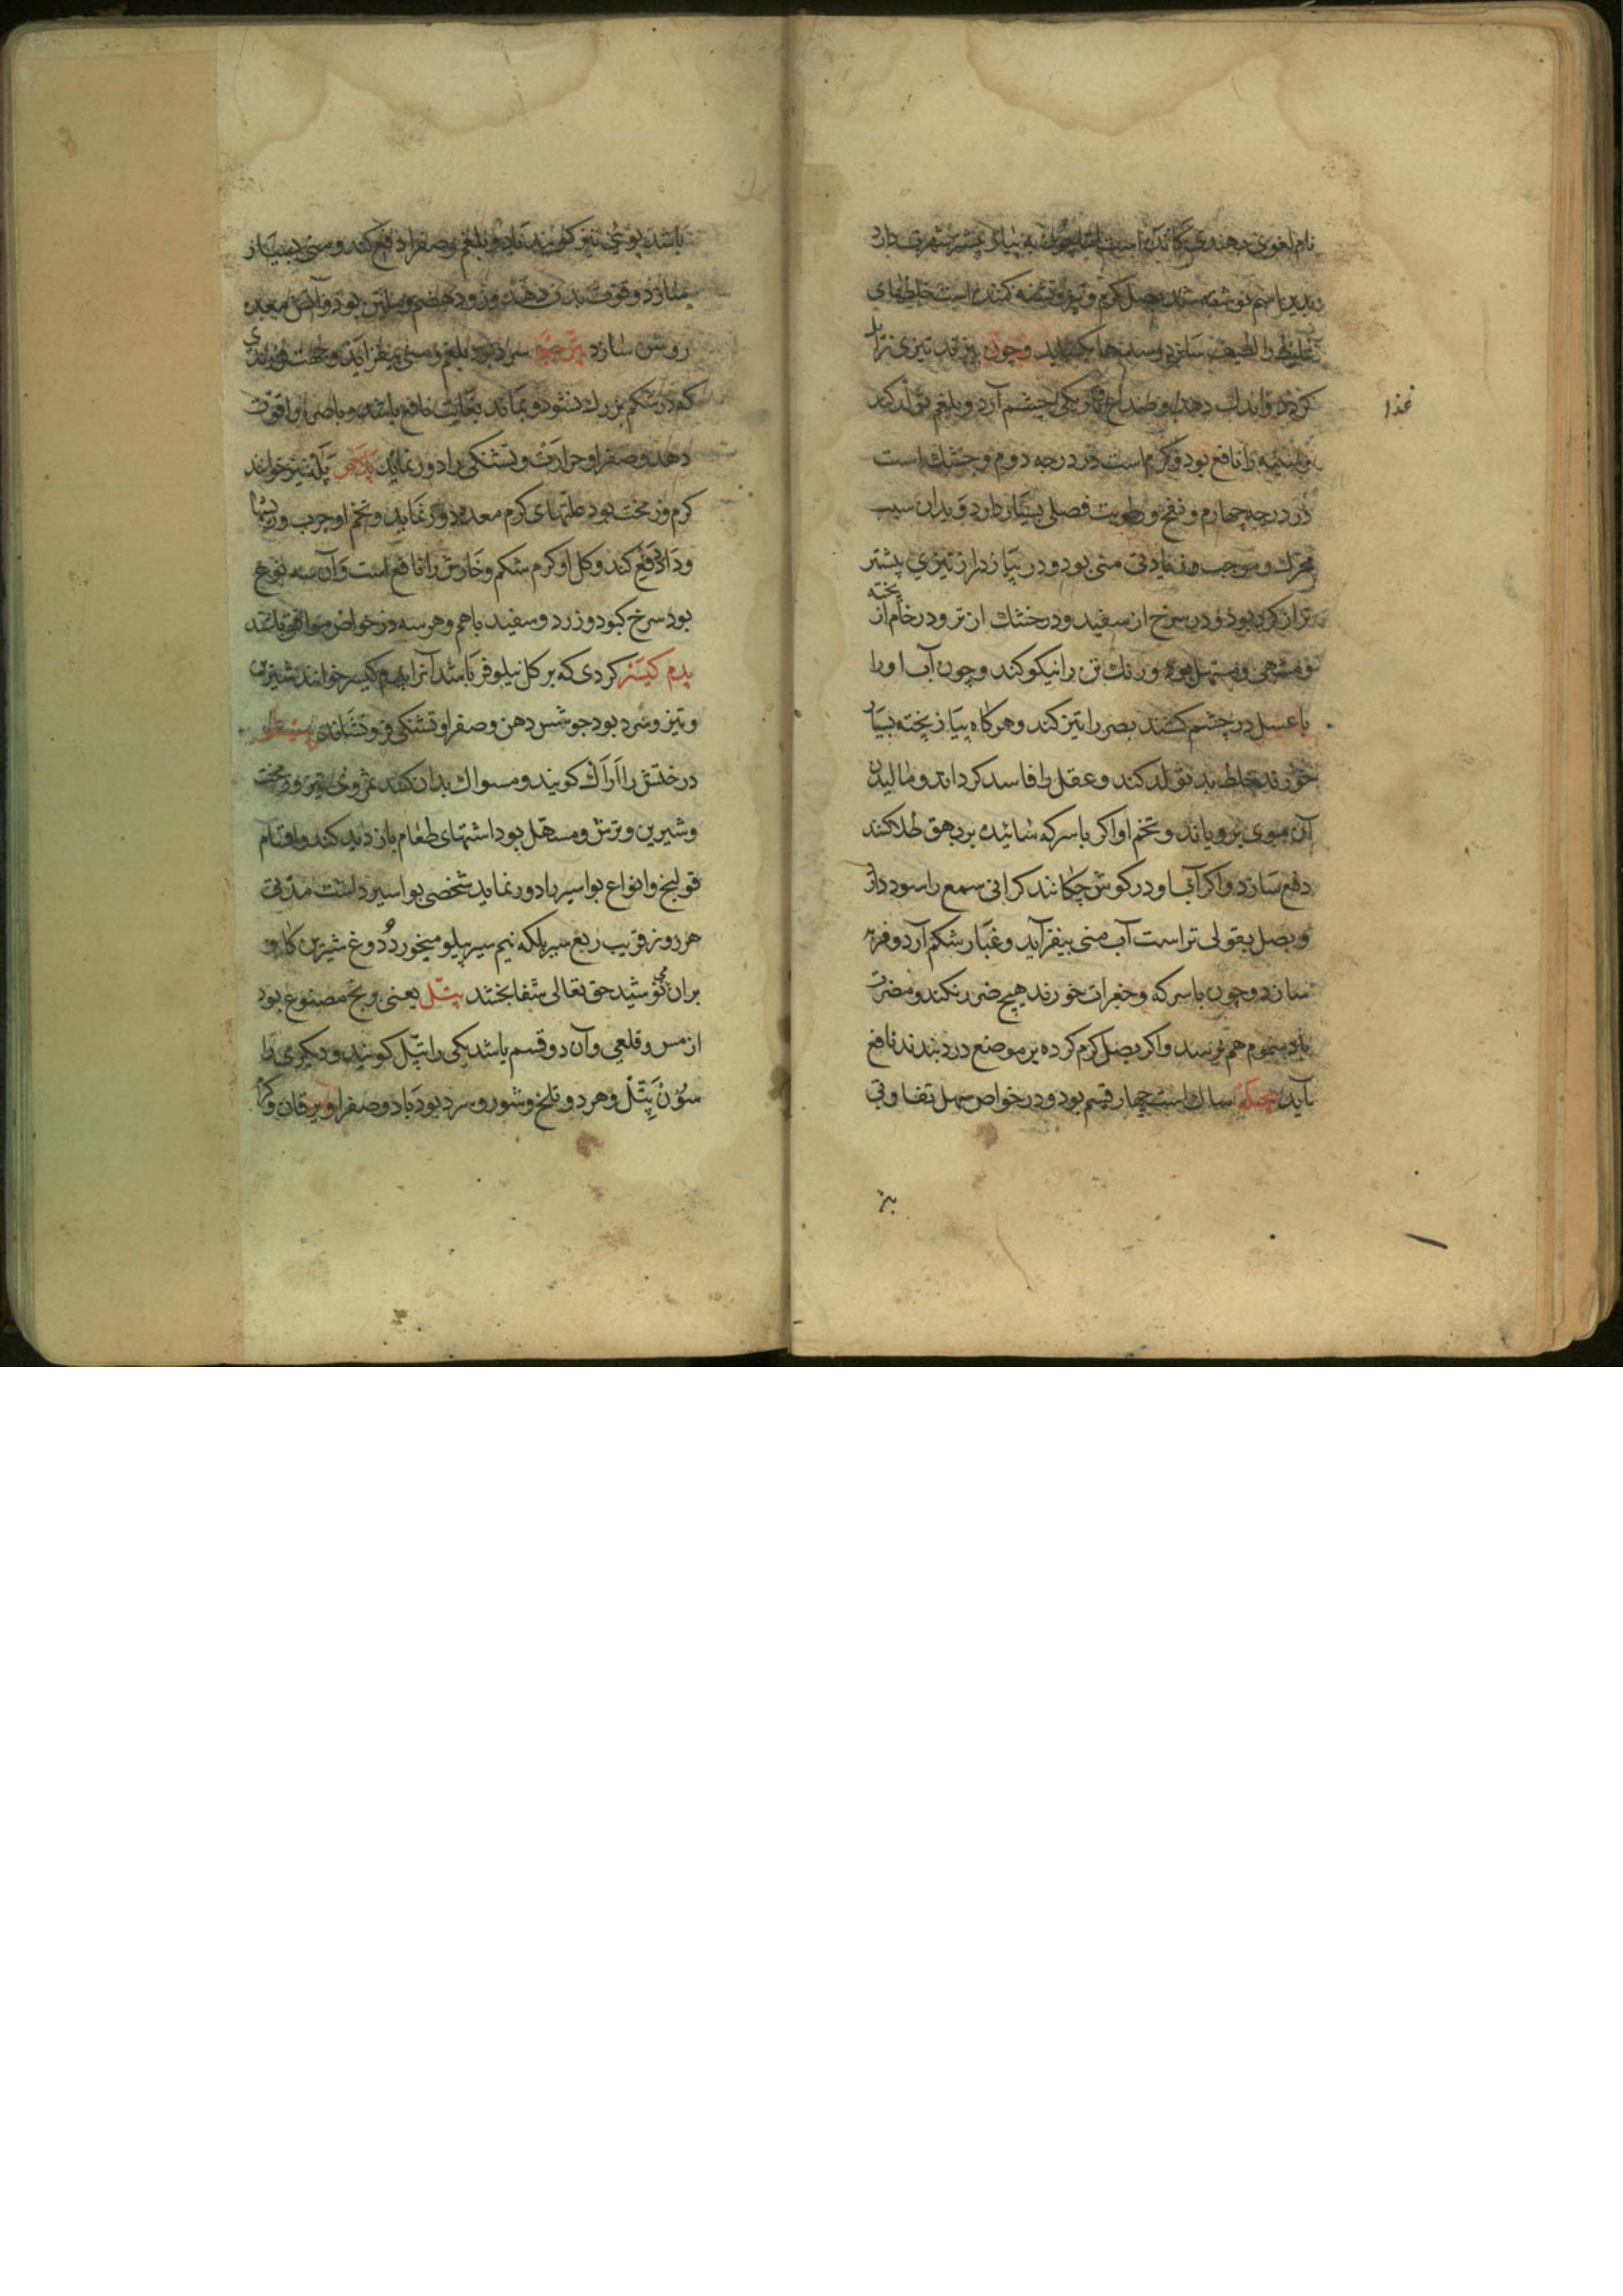 نام لغوی و هندی کانده است اما چون به پیاز بیشتر شهرت دارد
بدین اسم نوشته شد بصل کرم و تیز و کننده است خلطهای
غلیظ را لطیف سازد و سدها بکشاید و چون بپزند تیزی زایل
کردد و اندک دهد و صداع و تاریکی چشم آرد و بلغم تولد کند
غذا
را نافع بود و کرم است در درجه دوم و خشک است
در درجه چهارم و نفخ و رطوبت فصلی بسیار دارد و بدان سبب
محرک و موجب زیادتی منی بود و در پیاز دراز تیزی بیشتر
تر از کرد بود و در سرخ از سفید و در خشک از تر و در خام از پخته
و مشهی و مسهل بود و رنک تن را نیکو کند و چون آب او را
با عسل در چشم کشند بصر را تیز کند و هرکاه پیاز پخته بسیار
خورند خلط بد تولد کند و عقل را فاسد کرداند و مالیدن
آن موی برویاند و تخم او اکر با سرکه سائیده بر بهق طلا کنند
دفع سازد و اکر آب او در کوش چکانند کرانی سمع را سود دارد
و بصل بقولی تر است آب منی بیفزآید و غبار شکم آرد و فربه
سازد و چون با سرکه و جغرات خورند هیچ ضرر نکند و مضرت
باد سموم هم نرسد و اکر بصل کرم کرده بر موضع درد بندند نافع
آید ساک است چهار قسم بود و در خواص سهل تفاوتی
بز
باشد پوئی نیز کویند باد و بلغم و صفرا دفع کند و منی بسیار
سازد و قوت بدن دهد و زود هضم و ملین بود و آتش معده
روشن سازد سرد بود بلغم و منی بیفزآید و جهت فرزندی
که در شکم بزرک نشود و بماند بغایت نافع باشد و باصره را قوت
دهد و صفرا و حرارت و تشنکی را دور نماید پلاس پلته نیز خوانند
کرم و زمخت بود علتهای کرم معده دور نماید و تخم او جرب و ریشها
و داد دفع کند و کل او کرم شکم و خارش را نافع است و آن سه نوع
بود سرخ کبود و زرد و سفید باهم و هر سه در خواص موافق باشند
پدم کیسر کردی که بر کل نیلوفر باشد آنرا پدم کیسر خوانند شیرین
و تیز و سرد بود جوشس دهن و صفرا و تشنکی فرو نشاند
درختش را اراک کویند و مسواک بدان کنند ثمر وی تیز و زمخت
و شیرین و ترش و مسهل بود اشتهای طعام بازدید کند و اقسام
قولنج و انواع بواسیر باد دور نماید شخصی بواسیر داشت مدتی
هر روز قریب ربع سیر بلکه نیم سیر پیلو میخورد و دوغ شیرین کاو
بران می نوشید حق تعالی شفا بخشد پتل یعنی برنج مصنوع بود
از مس و قلعی و آن دو قسم باشد یکی را پتل کویند و دیکری را
سون پتل و هر دو تلخ و شور و سرد بود باد و صفرا و یرقان و کرم